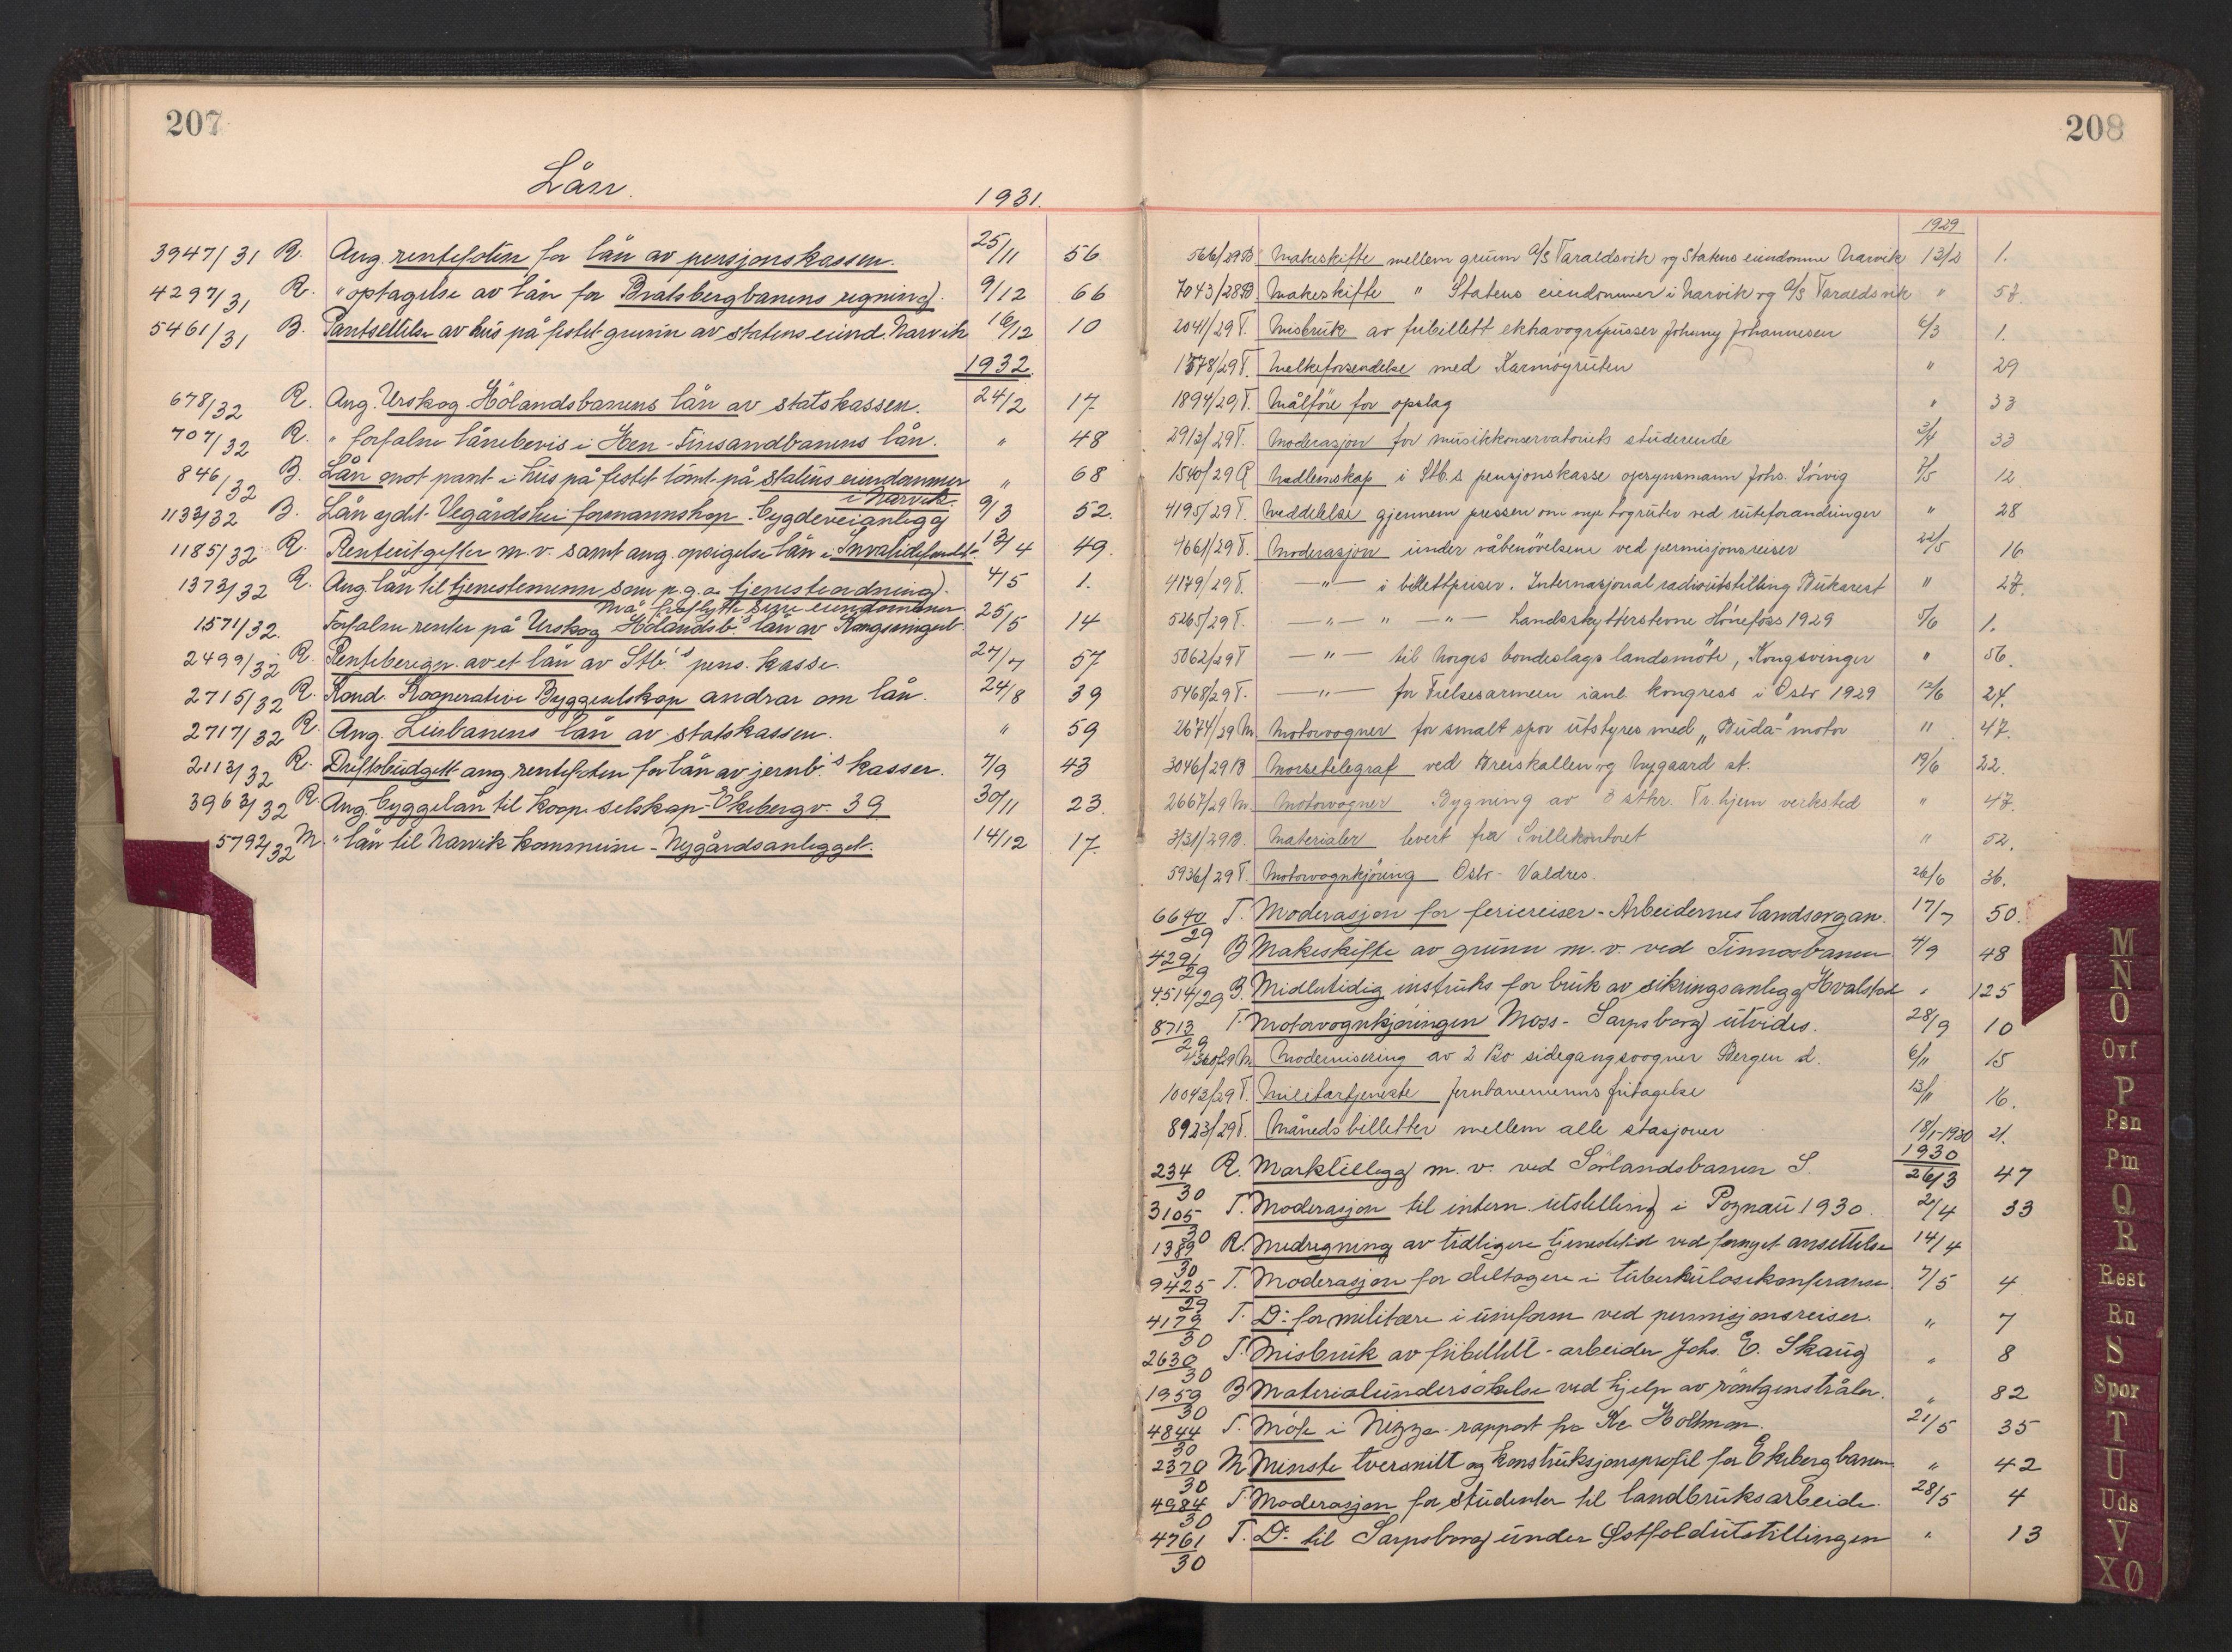 207
Lån.
1931.
3947/31 R. Ang. rentefoten for lån av pensjonskassen. 25/11 56
4297/31 R. " optagelse av lån for Bratsbergbanens regning. 9/12 66
5461/31 B. Pantsettelse av hus på festet grunn av statens eiend. Narvik 16/12 10
1932.
678/32 R. Ang. Urskog-Hölandsbanens lån av statskassen. 24/2 17
707/32 R. " forfalne lånebevis i Hen-Finsandbanens lån. " 48
846/32 B. Lån mot pant i hus på festet tomt på statens eiendommer " 68
i Narvik.
1133/32 B. Lån ydet Vegårdshei formannskap - bygdeveianlegg 9/3 52.
1185/32 R. Renteutgifter m.v. samt ang. opsigelse lån i Invalidefondet. 13/4 49.
1373/32 R. Ang lån til tjenestemenn som p.g.a. tjenesteordning 4/5 1.
må fraflytte sine eiendommer
1571/32. Forfalne renter på Urskog Hölandsb.s lån av Kongsvingerb. 25/5 14
2499/32 R. Renteberegn. av et lån av Stb.'s pens. kasse. 27/7 57
2715/32 R. Kond. Kooperative Byggeselskap andrar om lån. 24/8 39
2717/32 R. Ang. Lierbanens lån av statskassen. " 59
2113/32 R. Driftsbudgett ang. rentefoten for lån av jernb.'s kasser. 7/9 43
3963/32 R. Ang byggelån til koop. selskap - Ekebergv. 39 30/11 23.
5792/32 M. " lån til Narvik kommune - Nygårdsanlegget. 14/12 17.
208
1929
566/29 B Makeskifte mellem grunn A/S Taraldsvik og Statens eiendomme Narvik 13/2 1.
7043/28 B Makeskifte " Statens eiendommer i Narvik og A/S Taraldsvik " 57.
2041/29 T. Misbruk av fribillett ekhavogrpusser Johnny Johannesen 6/3 1.
1378/29 T. Melkeforsendelse med Karmöyruten " 29
1894/29 T. Målföre for opslag " 33
2913/29 T. Moderasjon for musikkonservatoriets studerende 3/4 33
1540/29 R Medlemskap i Stb.s pensjonskasse opsynsmann Johs. Sörvig 7/5 12
4195/29 T. Meddelelse gjennem pressen om nye togruter ved ruteforandringer " 28
4661/29 T. Moderasjon under våbenövelsene ved permisjonsreiser 22/5 16
4179/29 T. —"— i billettpriser. Internasjonal radioutstilling Bukarest " 27.
5265/29 T. —"— " —"— Landsskytterstevne Hönefoss 1929 5/6 1.
5062/29 T —"— til Norges bondeslags landsmöte, Kongsvinger " 56.
5468/29 T. —"— for Frelsesarmeen ianl. kongress i Oslo 1929 12/6 24.
2674/29 M Motorvogner for smalt spor utstyres med "Buda" motor " 47.
3046/29 B Morsetelegraf ved Breiskallen og Nygaard st. 19/6 22.
2667/29 M. Motorvogner Bygning av 3 stkr. Tr.hjem verksted " 47.
3131/29 B. Materialer levert fra Svillekontoret " 52.
5936/29 T. Motorvognkjöring Oslo - Valdres. 26/6 36.
6640/29 T. Moderasjon for feriereiser - Arbeidernes landsorgan. 17/7 50.
4291/29 B Makeskifte av grunn m.v. ved Tinnosbanen 4/9 48
4514/29 B. Midlertidig instruks for bruk av sikringsanlegg Hvalstad " 125
8713/29 T. Motorvognkjöringen Moss - Sarpsborg utvides. 28/9 10
/29 M Modernisering av 2 Bo sidegangsvogner Bergen d. 6/11 15
10043/29 T. Militærtjeneste jernbanemenns fritagelse 13/11 16.
8923/29 T. Månedsbilletter mellem alle stasjoner 18/1-1930 21.
1930
234/30 R. Marktillegg m.v. ved Sörlandsbanen S. 26/3 47
3105/30 T. Moderasjon til intern. utstilling i Poznan 1930. 2/4 33
1389/30 R. Medregning av tidligere tjenestetid ved fornyet ansettelse 14/4
9425/29 T. Moderasjon for deltagere i tuberkulosekonferanse 7/5 4
4179/30 T. Do for militære i uniform ved permisjonsreiser. " 7
2630/30 T. Misbruk av fribillett - arbeider Johs. E. Skaug " 8
1959/30 B Materialundersökelse ved hjelp av röntgenstråler. " 82
4844/30 T. Möte i Nizza - rapport fra Holtmon. 21/5 35
2370/30 M Minste tversnitt og konstruksjonsprofil for Ekebergbanen " 42
4984/30 T Moderasjon for studenter til landbruksarbeide. 28/5 4
4761/30 T. Do til Sarpsborg under Østfoldutstillingen " 13
M
N
O
Ovf
P
Psn
Pm
Q
R
Rest
Ru
S
Spor
T
U
Uds
V
XØ